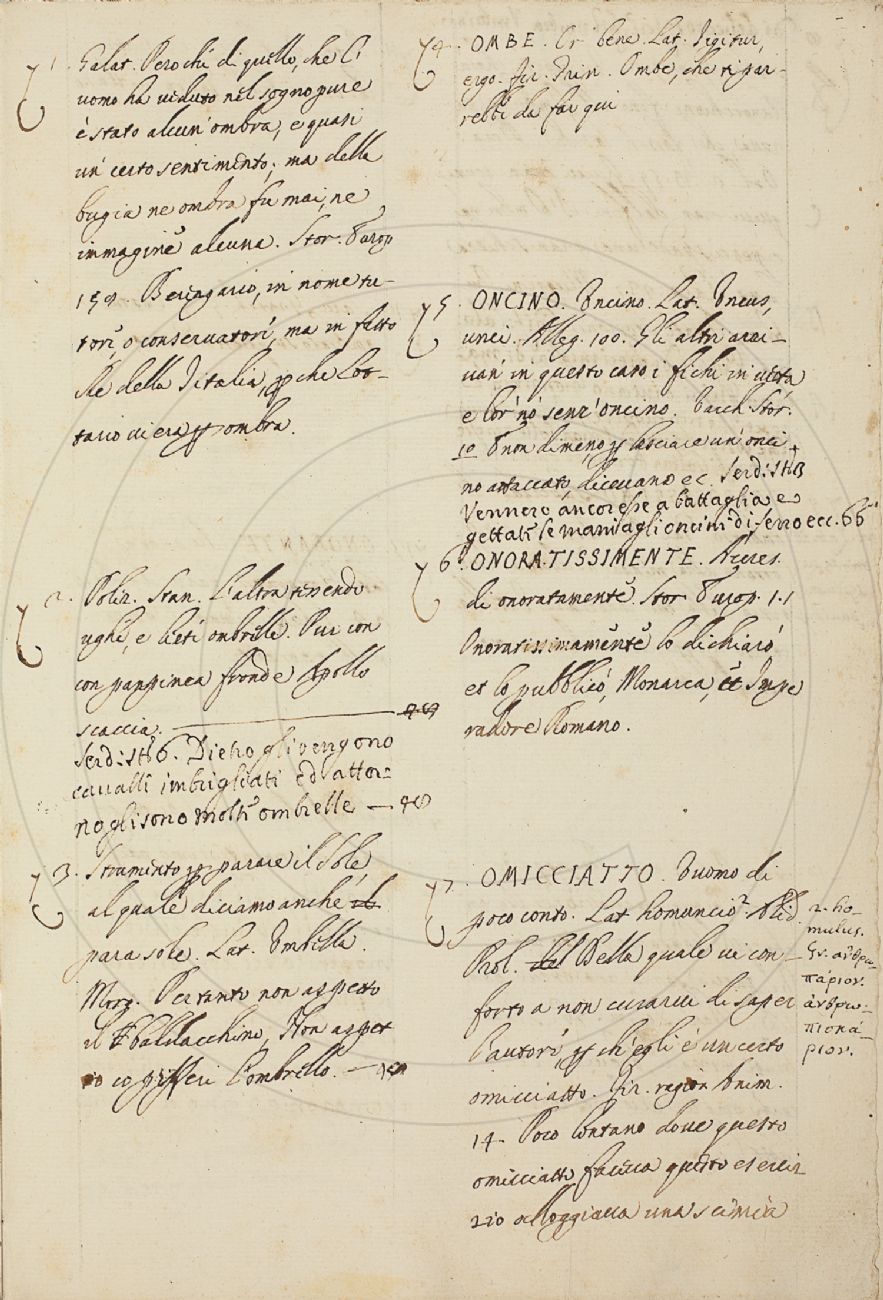 1. Galat. Perochè di quello, che l'
uomo ha veduto nel sogno pure
è stato alcun'ombra, e quasi
un' certo sentimento; ma della
bugia ne ombra fu mai, ne
immagine alcuna. Stor. Europ
159. Berengario, in nome tu-
tore, o conservatore, ma in fatto
Re della Italia, che Lot-
tario vi era ombra.
2. Poliz. Stan. L'altra tenendo
ughi, e lieti ombrelle. Pur con
con pampinea fronde Apollo
scaccia.
Serd. St. 6. Dietro gli vengono
cavalli imbrigliati ed attor-
no gli sono molte ombrelle
3. Strumento parare il Sole,
al quale diciamo anche
parasole. Lat. Umbella.
Morg. Pertanto non aspetto
il baldacchino, Non aspet
to co pifferi l'ombrello.
4. OMBE. Or bene Lat. Igitur,
ergo. Fir. Trin. Ombe, che ti par-
rebbe da far qui
5. ONCINO. Uncino. Lat. Uncus,
unci. Alleg. 100. Gli altri arri-
van' in questo caso i fichi in vetta
e lor' nò senz'oncino. Varch. Stor.
10 E non dimeno lasciare un'onci
no attaccato, dicevano ec. Serd. St. 13
Vennero ancor esse a battaglia e
gettate le mani agli oncini di ferro ecc.
6. ONORATISSIMENTE. Accres.
di onoratamente. Stor. Europ. 1.1
Onoratissimamente lo dichiarò
et lo pubblicò, Monarca, et Impe
radore Romano.
7. OMICCIATTO. Uuomo di
poco conto. Lat homuncio
Prol. Bella quale vi con-
forto a non curarvi di saper
l'autore, ch'egli è un certo
omicciatto. Fir. region Anim.
14. Poco lontano dove questo
omicciatto faceva questo eserci-
zio alloggiava una scimia
2. ho-
mulus.
Gr. ἀνθρω-
πάριον.
ἀνθρω-
πισκά-
ριον.